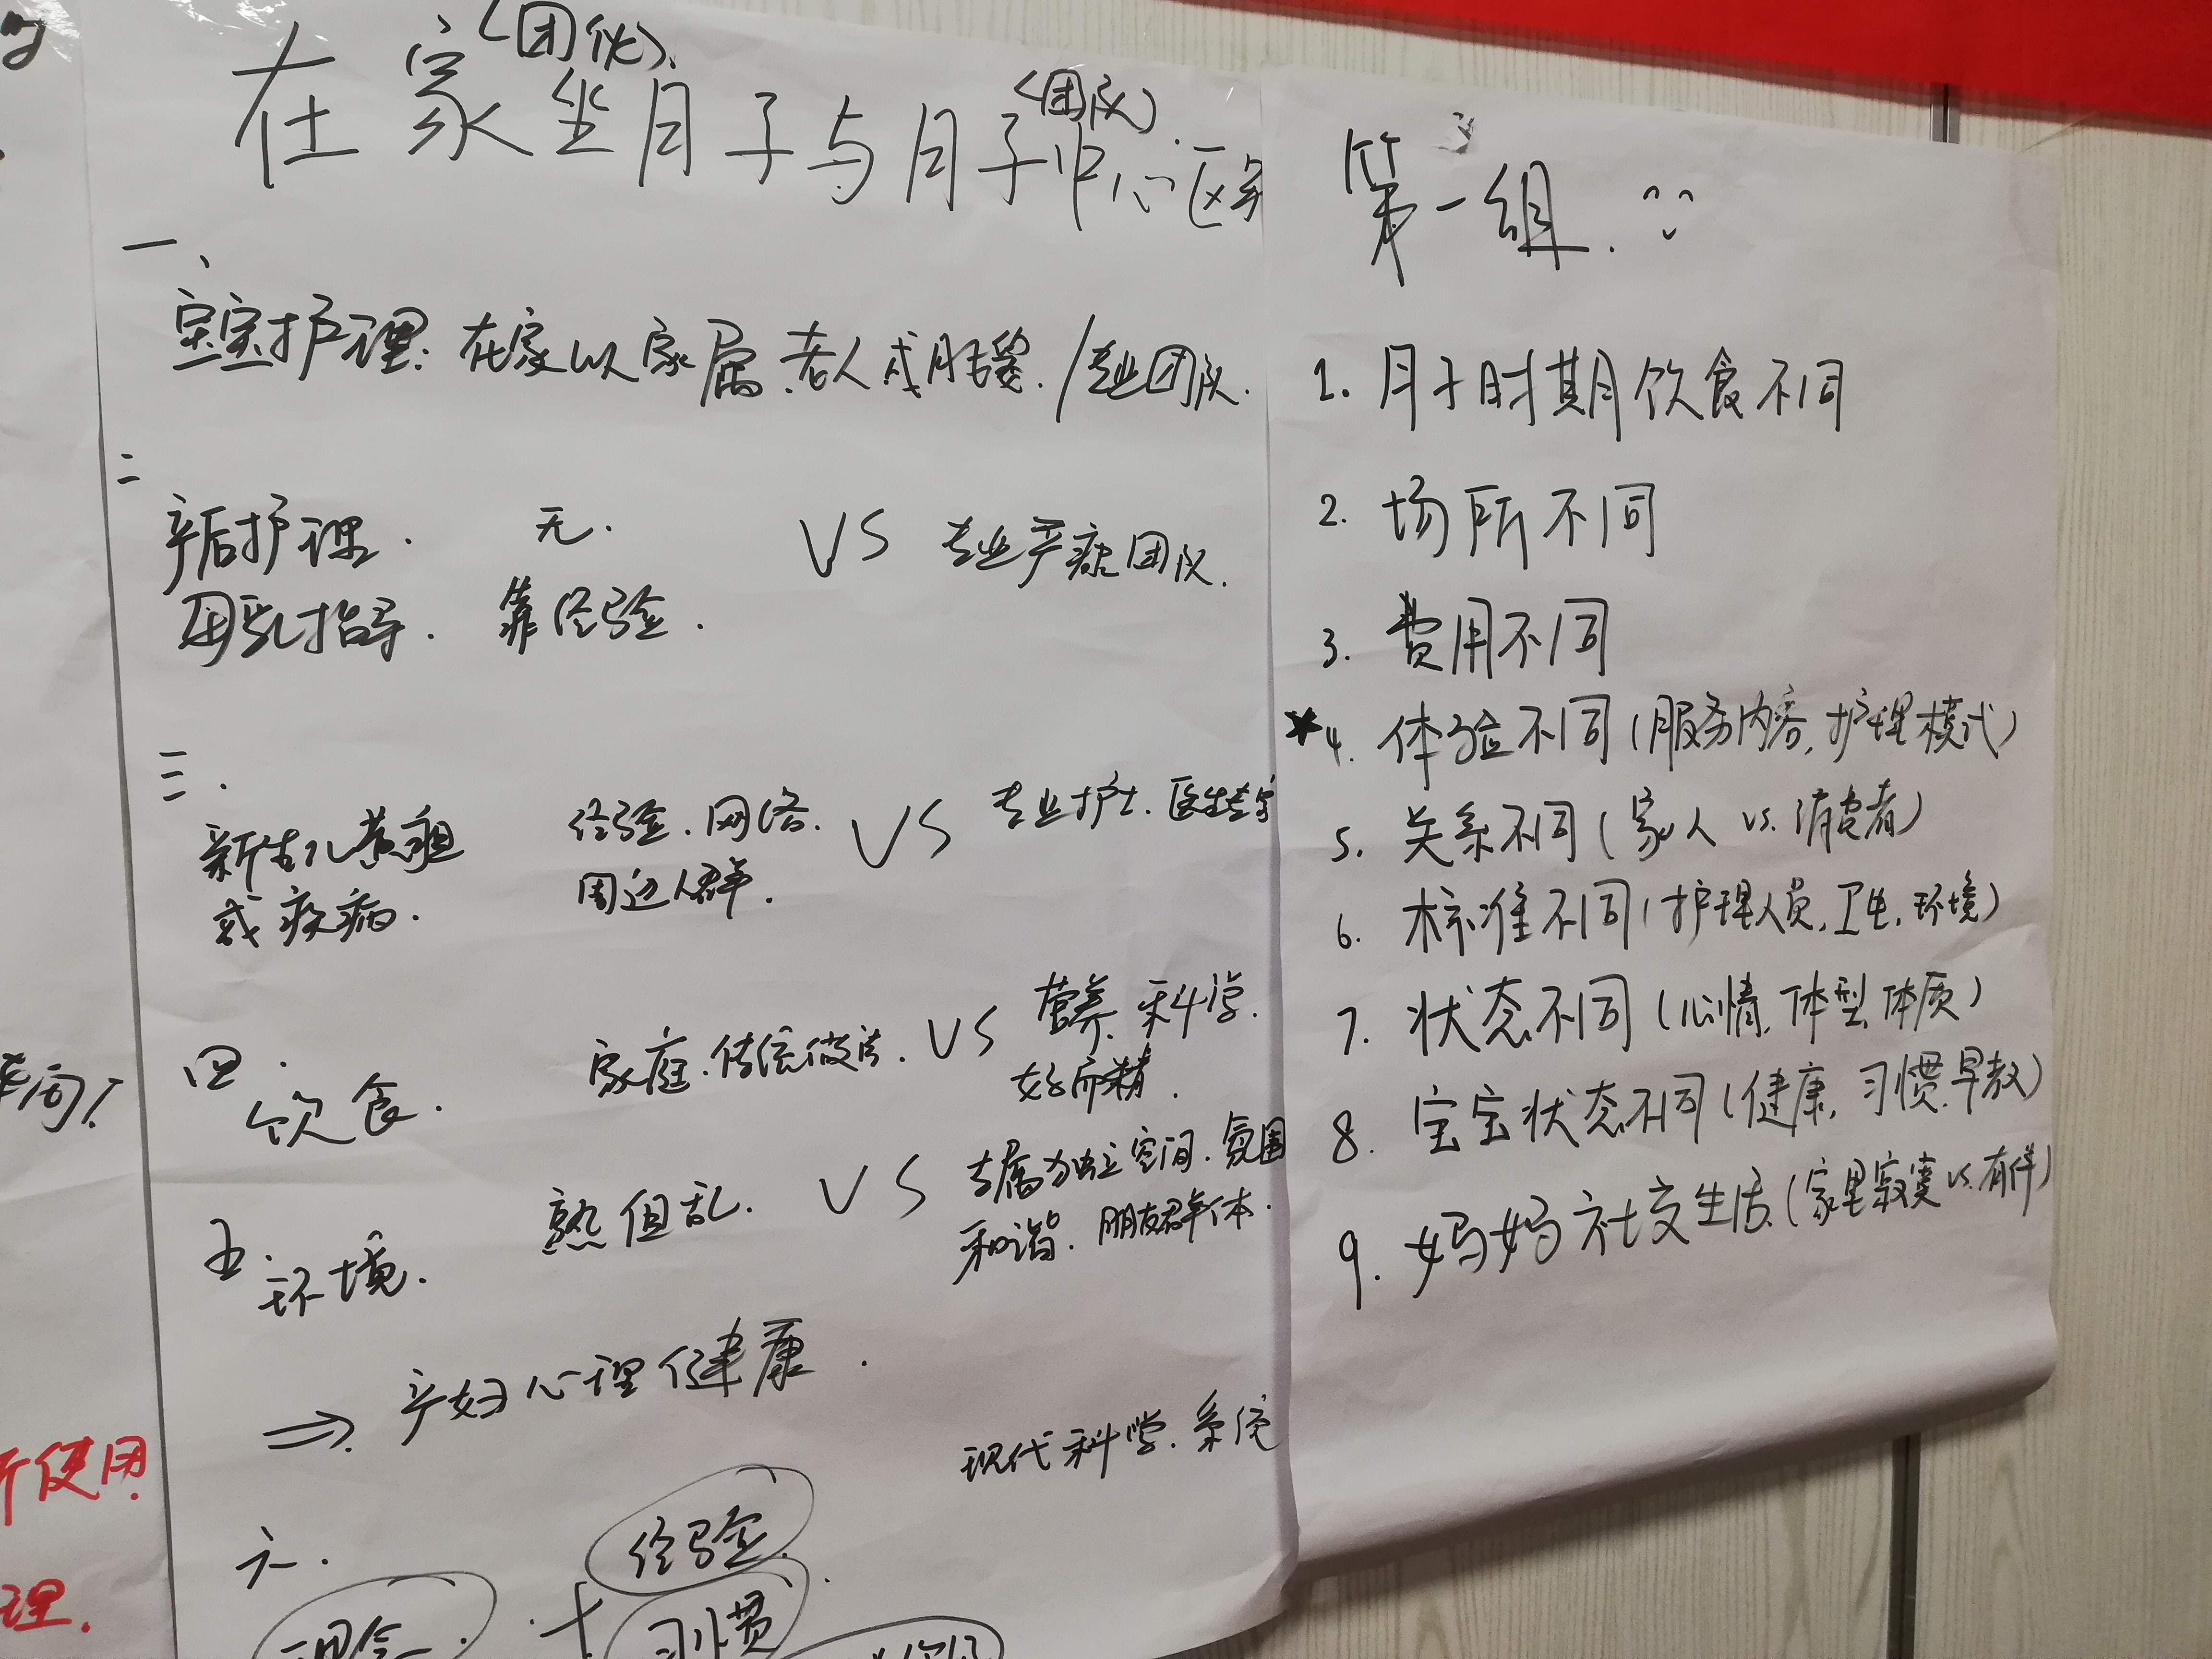 (团伙)
(团队)
在家坐月子与月子中心区
一、
宝宝护理: 在家以家属.老人或月嫂. / 专业团队.
二
产后护理. 无. VS 专业产康团队.
母乳指导. 靠经验.
三.
新生儿黄疸 经验.网络. VS 专业护士.医生
或疾病. 周边人群.
四.
饮食. 家庭.传统做法. VS 营养.科学.
好而精.
五.
环境. 熟但乱. VS 专属独立空间.氛围
和谐.朋友群体.
⇒ 产妇心理健康.
现代科学.系统
六.
经验.
理念. + 习惯
第一组.
1. 月子时期饮食不同
2. 场所不同
3. 费用不同
★4. 体验不同(服务内容,护理模式)
5. 关系不同(家人 vs.消费者)
6. 标准不同(护理人员,卫生,环境)
7. 状态不同(心情,体型,体质)
8. 宝宝状态不同(健康,习惯,早教)
9. 妈妈社交生活(家里寂寞 vs.有伴)
使用.
理.